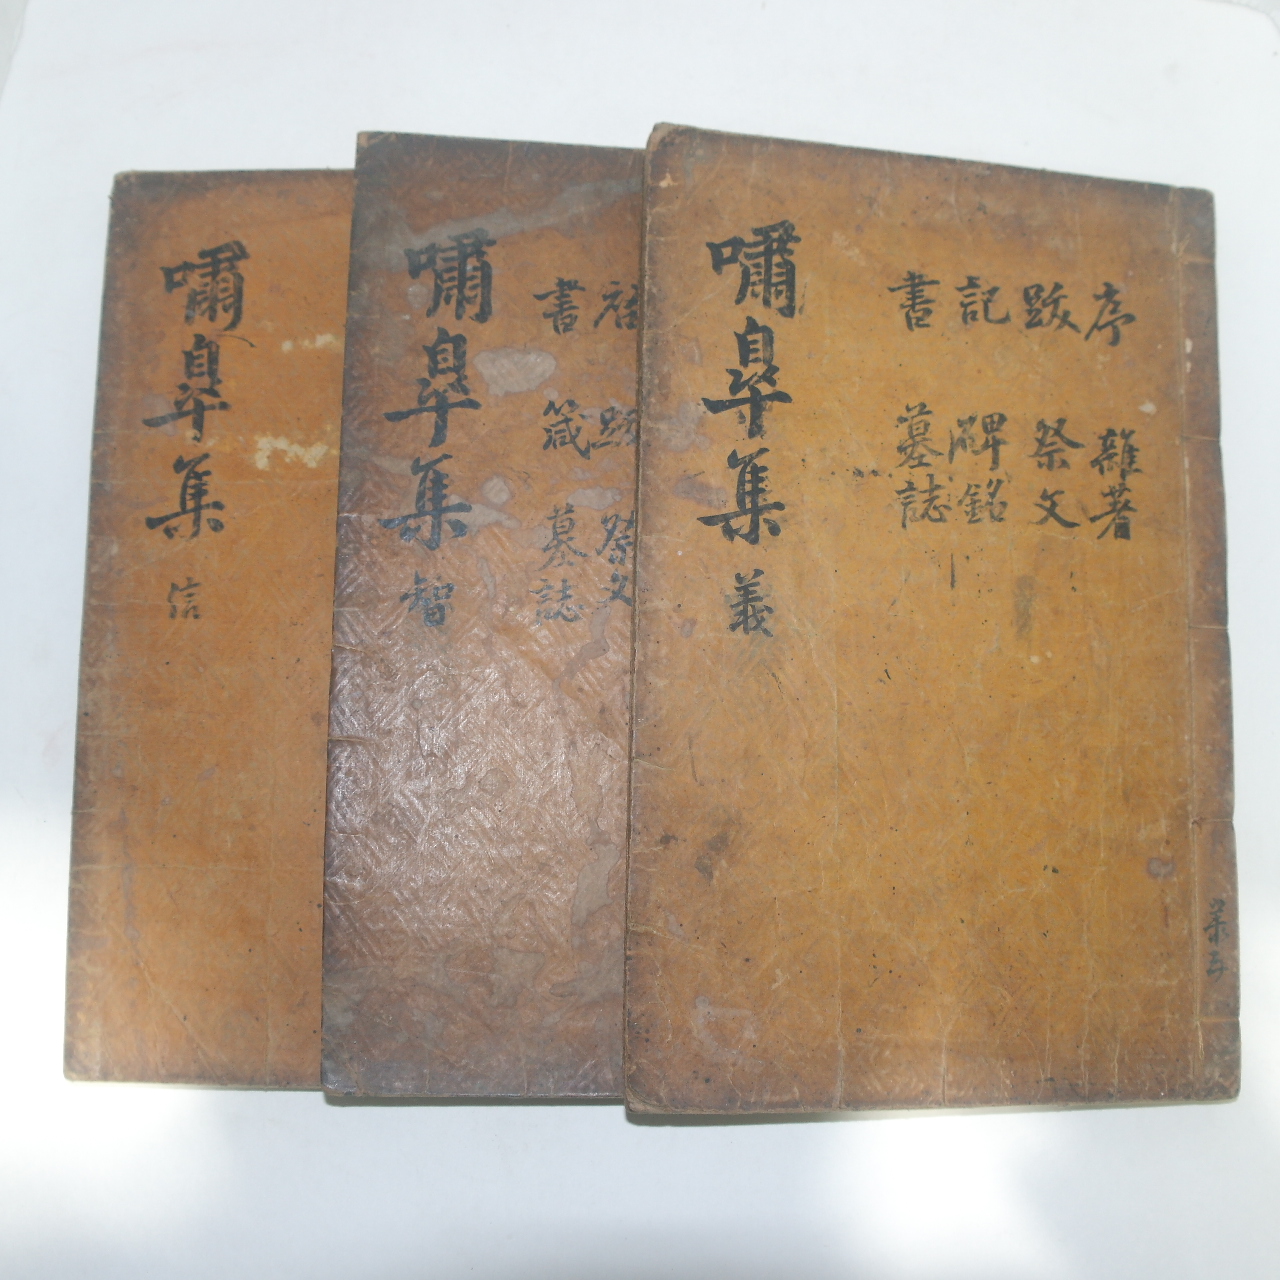 嘯皐集 信
嘯皐集 智
啓 跋 祭文
書 箴 墓誌
嘯皐集 義
序 雜著
跋 祭文
記 碑銘
書 墓誌